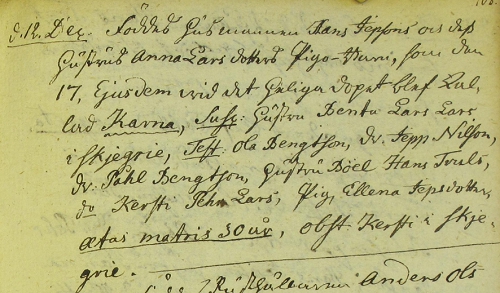 d. 12. Dec. Föddes Husmannen Hans Jepsons och des
Hustrus Anna Lars dotters Piga-Barn, som den
17, Ejusdem wid det Heliga dopet blef Kal-
lad Karna, Susc: Hustru Benta Lars Lars
i Skjegrie, Test. Ola Bengtson, dr. Jepp Nilson,
dr. Påhl Bengtson, Hustru Boel Hans Truls,
do Kersti Pehr Lars, Pig. Ellena Jepsdotter,
ætas matris 30 år, obst. Kersti i Skje-
grie.
Anders Ols